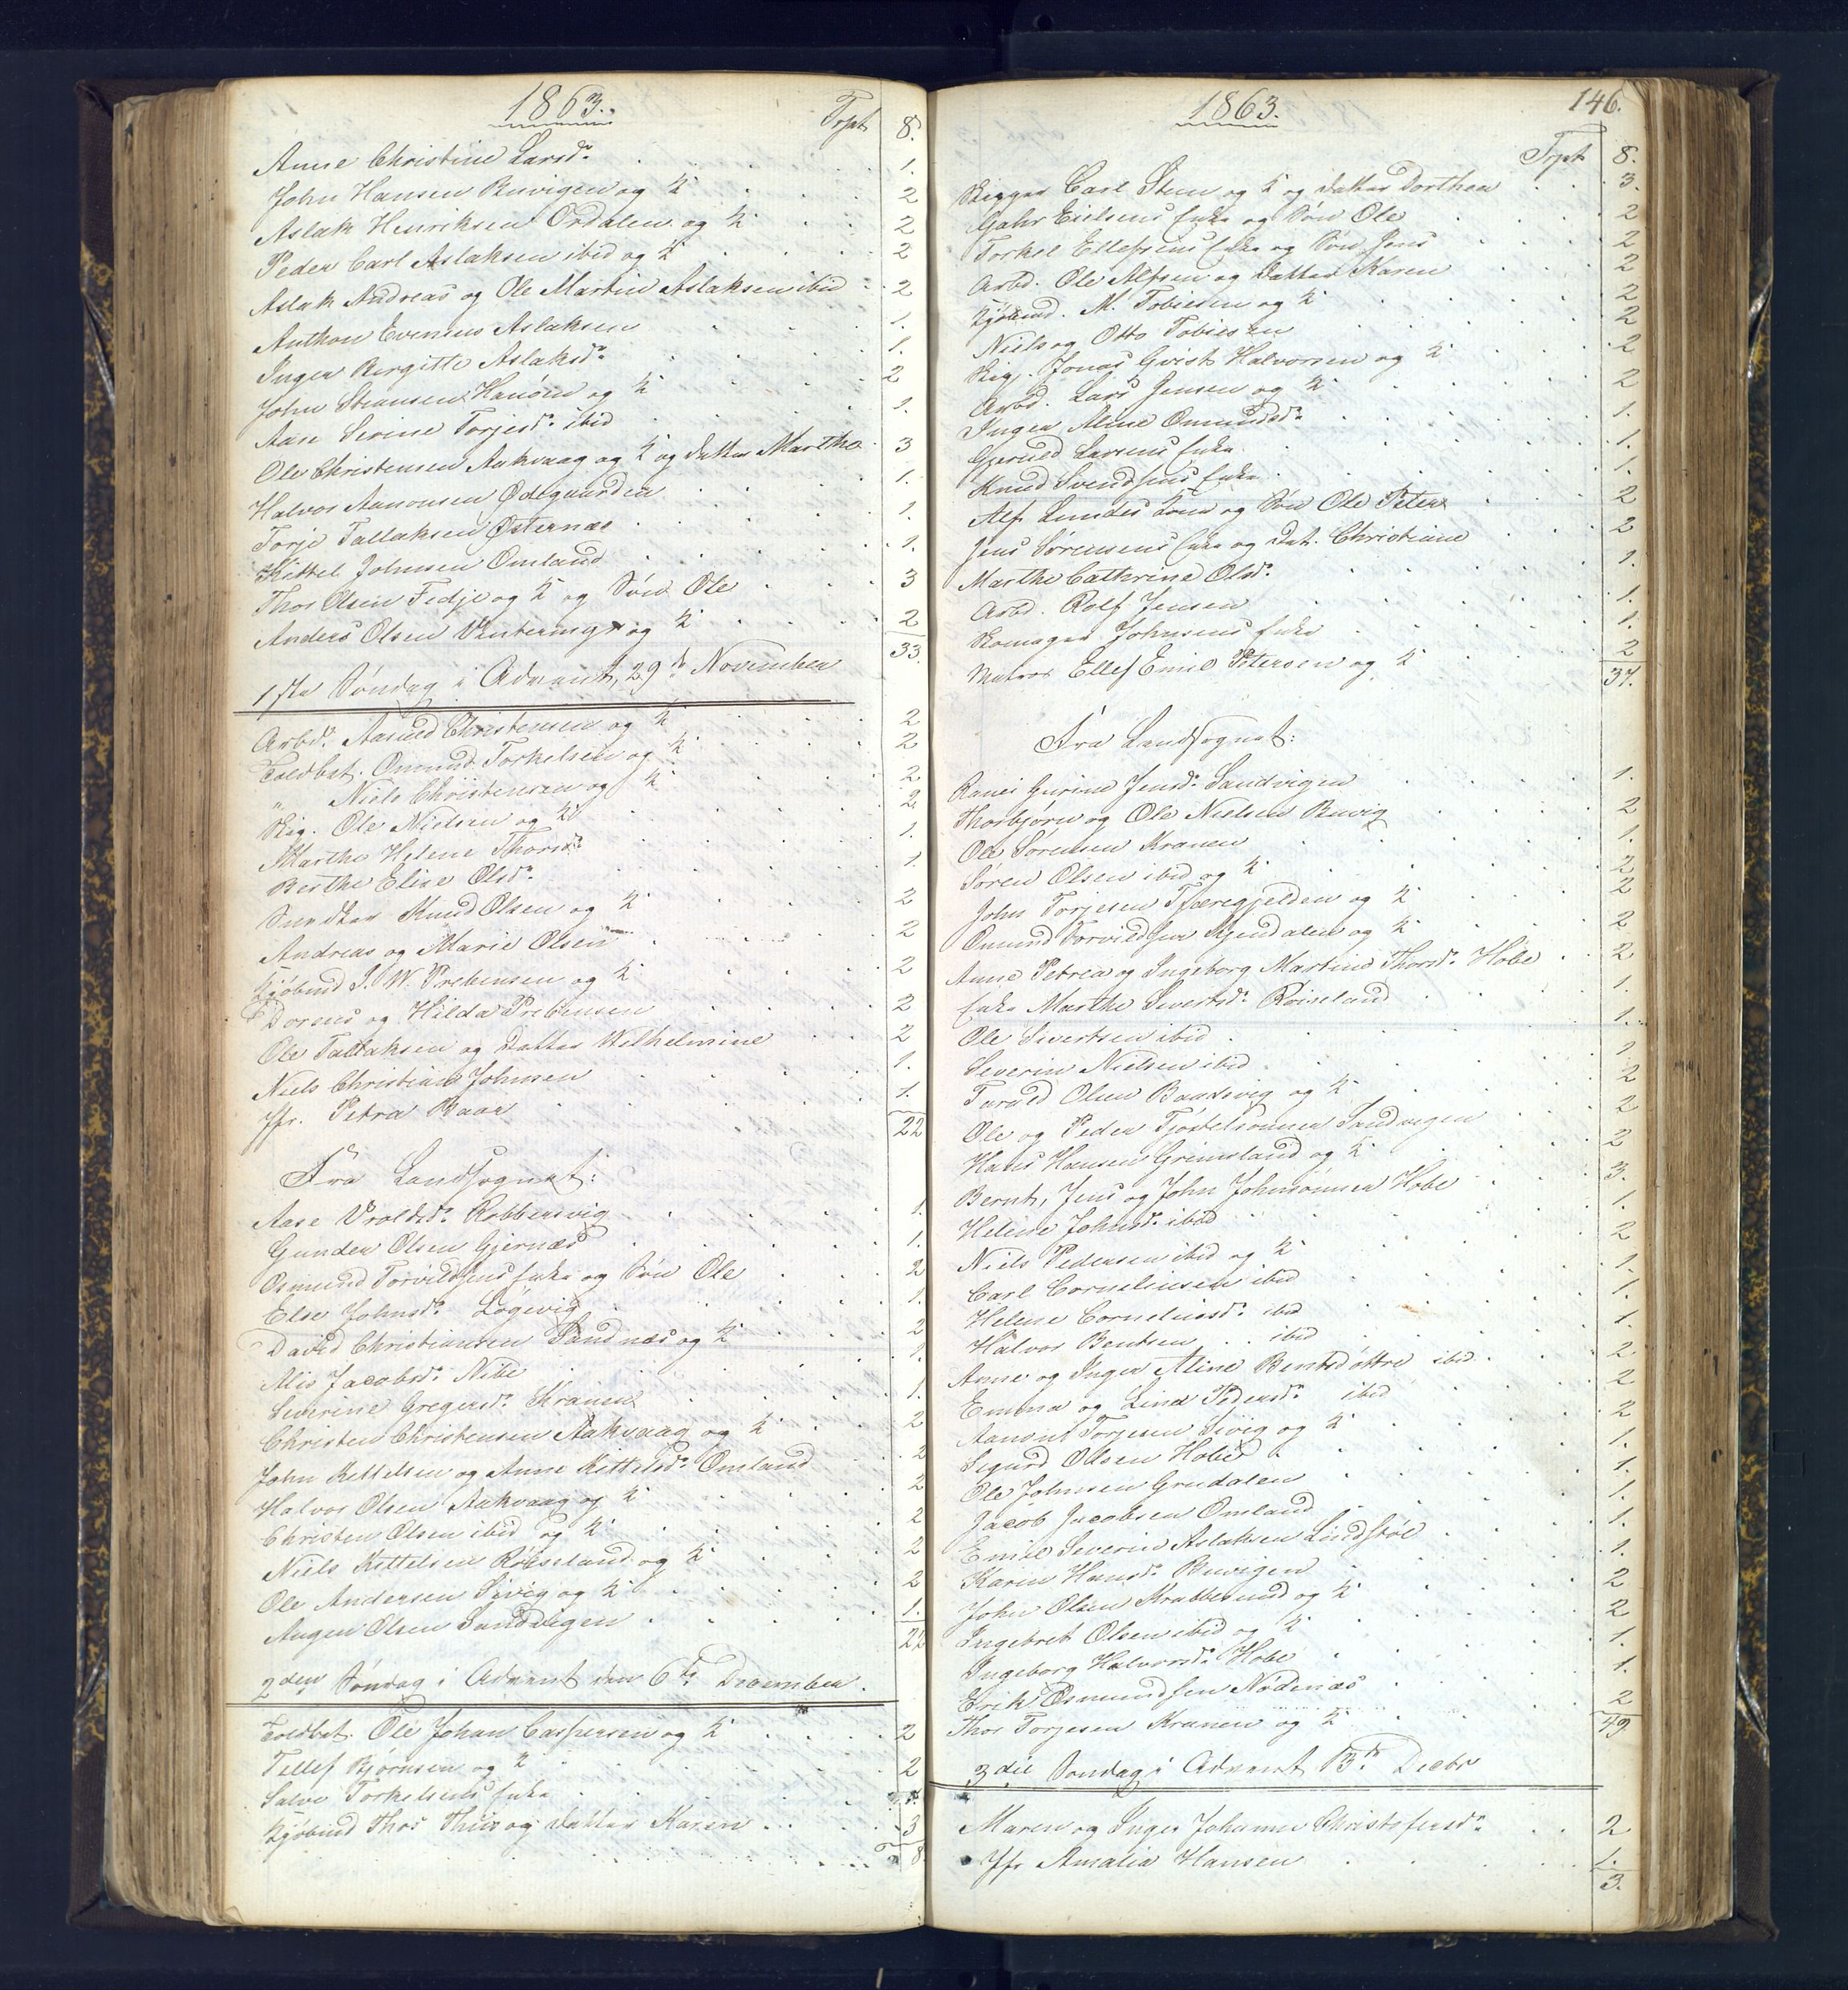 1863.
Trpt 8.
Anne Christine Larsd: 1.
John Hansen Buvigen og K: 2
Aslak Henriksen Ordalen og K: 2
Peder Carl Aslaksen ibid og K: 2
Aslak Andreas og Ole Martin Aslaksen ibid 2
Anthon Evensen Aslaksen 1.
Inger Birgitte Aslaksd: 1.
John Stiansen Hanöen og K: 2
Aase Serine Torjesd: ibid 1.
Ole Christensen Aakvaag og K: og Datter Marthe 3
Halvor Aanonsen Ødegaarden 1.
Torje Tallaksen Østernæs 1.
Kittel Johnsen Omland 1.
Thor Olsen Fedje og K: og Sön Ole 3
Anders Olsen og K: 2
33.
1ste Söndag i Advent, 29de November
Arbd: Aasuld Christensen og K: 2
Toldbet. Omund Torkelsen og K: 2
" Niels Christensen og K: 2
Rig. Ole Nielsen og K: 2
Marthe Helene Thorsd: 1.
Berthe Elise Olsd: 1.
Knud Olsen og K: 2
Andreas og Marie Olsen 2
Kjöbmd J. W. Prebensen og K: 2
Dorens og Hilda Prebensen 2
Ole Tallaksen og Datter Wilhelmine 2
Niels Christian Johnsen 1.
Jfr. Petra Baar 1.
22
Fra Landsognet:
Aase Vroldsd: Robbersvig 1.
Gunder Olsen Gjernæs 1.
Osmund Torvildsens Enke og Sön Ole 2
Else Johnsd: Lögevig 1.
David Christiansen Sandnæs og K: 2
Alis Jacobsd: Nibe 1.
Severine Gregersd: Kranen 1.
Christen Christensen Aakvaag og K: 2
John Kittelsen og Anne Kittelsd: Omland 2
Halvor Olsen Aakvaag og K: 2
Christen Olsen ibid og K: 2
Niels Kittelsen Röiseland og K: 2
Ole Andersen Sivig og K: 2
Aagen Olsen Sandvigen 1.
22
2den Söndag i Advent den 6te December.
Toldbet. Ole Johan Caspersen og K: 2
Tellef Björnsen og K 2
Salve Torkelsens Enke 1
Kjöbmd Thor Thue og Datter Karen 3
T 8
1863.
146.
Trpt 8.
Rigger Carl Steen og K: og Datter Dorthea 3.
Gahr Eielsens Enke og Sön Ole 2
Torkel Ellefsens Enke og Sön Jens 2
Arbd. Ole Alfsen og Datter Karen 2
Kjöbmd. M. Tobiesen og K: 2
Niels og Otto Tobiesen 2
Rig. Jonas Qvist Halvorsen og K: 2
Arbd. Lars Jensen og K: 2
Inger Aline Omundsd: 1.
Gjeruld Larsens Enke 1.
Knud Svendsens Enke 1.
Alf Lundes Kone og Sön Ole Peter 2
Jens Sörensens Enke og Dat. Christiane 2
Marthe Cathrine Olsd: 1.
Arbd. Rolf Jensen 1.
Skomager Johnsens Enke 1.
Matros Ellef Emil Petersen og K: 2
37.
Fra Landsognet:
Ranei Gurine Jensd: Sandvigen 1.
Thorbjörn og Ole Nielsen Buvig 2
Ole Sörensen Kranen 1.
Sören Olsen ibid og K: 2
John Torjesen Tjæregjelden og K: 2
Omund Torvildsen Mjendalen og K: 2
Anne Petrea og Ingeborg Martine Thorsd: Höbe 2
Enke Marthe Sivertsd: Röiseland 1.
Ole Sivertsen ibid 1.
Severin Nielsen ibid 1
Taruld Olsen Baadsvig og K: 2
Ole og Peder Tjöstelsönner Sandvigen 2
Hans Hansen Grimsland og K: 2
Bernt, Jens og John Johnsönner Hobe 3.
Helene Johnsd: ibid 1.
Niels Pedersen ibid og K: 2
Carl Corneliusen ibid 1.
Helene Corneliusd: ibid 1.
Halvor Bentsen ibid 1.
Anne og Inger Aline Bentsdöttre ibid 2
Emma og Lina Pedersd: ibid 2
Aanon Torjesen Sivig og K: 2
Sigurd Olsen Hobe 1.
Ole Johnsen Grudalen 1.
Jacob Jacobsen Omland 1.
Emil Severin Aslaksen Lindstöl 1.
Karen Hansd: Buvigen 1.
John Olsen Krabbesund og K: 2
Ingebret Olsen ibid og K: 2
Ingeborg Halvorsd: Hobe 1.
Erik Osmundsen Nödenæs 1.
Thor Torjesen Kranen og K: 2
49.
3die Söndag i Advent 13de Decbr
Maren og Inger Johanne Christofersd: 2
Jfr Amalia Hansen 1.
3.